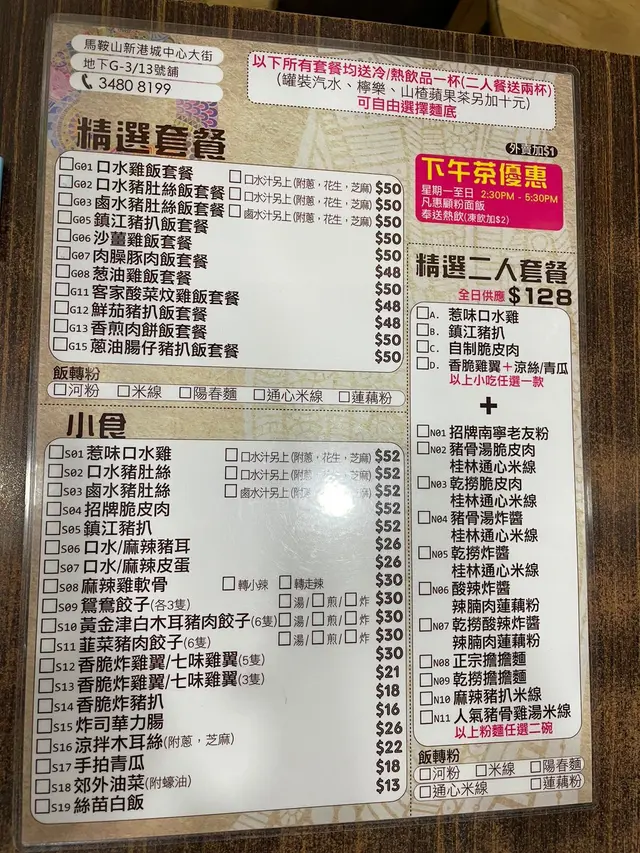 馬鞍山新港城中心大街
地下G-3/13號舖
3480 8199
以下所有套餐均送冷/熱飲品一杯(二人餐送兩杯)
(罐裝汽水、檸樂、山楂蘋果茶另加十元)
可自由選擇麵底
精選套餐
外賣加$1
G01 口水雞飯套餐 口水汁另上(附蔥，花生，芝麻) $50
G02 口水豬肚絲飯套餐 口水汁另上(附蔥，花生，芝麻) $50
G03 鹵水豬肚絲飯套餐 鹵水汁另上(附蔥，花生，芝麻) $50
G05 鎮江豬扒飯套餐 $50
G06 沙薑雞飯套餐 $50
G07 肉臊豚肉飯套餐 $48
G08 葱油雞飯套餐 $50
G11 客家酸菜炆雞飯套餐 $48
G12 鮮茄豬扒飯套餐 $48
G13 香煎肉餅飯套餐 $50
G15 蔥油腸仔豬扒飯套餐 $50
飯轉粉
河粉 米線 陽春麵 通心米線 蓮藕粉
小食
S01 惹味口水雞 口水汁另上(附蔥，花生，芝麻) $52
S02 口水豬肚絲 口水汁另上(附蔥，花生，芝麻) $52
S03 鹵水豬肚絲 鹵水汁另上 $52
S04 招牌脆皮肉 $52
S05 鎮江豬扒 $52
S06 口水/麻辣豬耳 $26
S07 口水/麻辣皮蛋 $26
S08 麻辣雞軟骨 轉小辣 轉走辣 $30
S09 鴛鴦餃子(各3隻) 湯/煎/炸 $30
S10 黃金津白木耳豬肉餃子(6隻) 湯/煎/炸 $30
S11 韮菜豬肉餃子(6隻) 湯/煎/炸 $30
S12 香脆炸雞翼/七味雞翼(5隻) $30
S13 香脆炸雞翼/七味雞翼(3隻) $21
S14 香脆炸豬扒 $18
S15 炸司華力腸 $16
S16 涼拌木耳絲(附蔥，芝麻) $26
S17 手拍青瓜 $22
S18 郊外油菜(附蠔油) $18
S19 絲苗白飯 $13
下午茶優惠
星期一至日 2:30PM - 5:30PM
凡惠顧粉面飯
奉送熱飲(凍飲加$2)
精選二人套餐
全日供應 $128
A. 惹味口水雞
B. 鎮江豬扒
C. 自制脆皮肉
D. 香脆雞翼＋涼絲/青瓜
以上小吃任選一款
+
N01 招牌南寧老友粉
N02 豬骨湯脆皮肉
桂林通心米線
N03 乾撈脆皮肉
桂林通心米線
N04 豬骨湯炸醬
桂林通心米線
N05 乾撈炸醬
桂林通心米線
N06 酸辣炸醬
辣腩肉蓮藕粉
N07 乾撈酸辣炸醬
辣腩肉蓮藕粉
N08 正宗擔擔麵
N09 乾撈擔擔麵
N10 麻辣豬扒米線
N11 人氣豬骨雞湯米線
以上粉麵任選二碗
飯轉粉
河粉 米線 陽春麵
通心米線 蓮藕粉